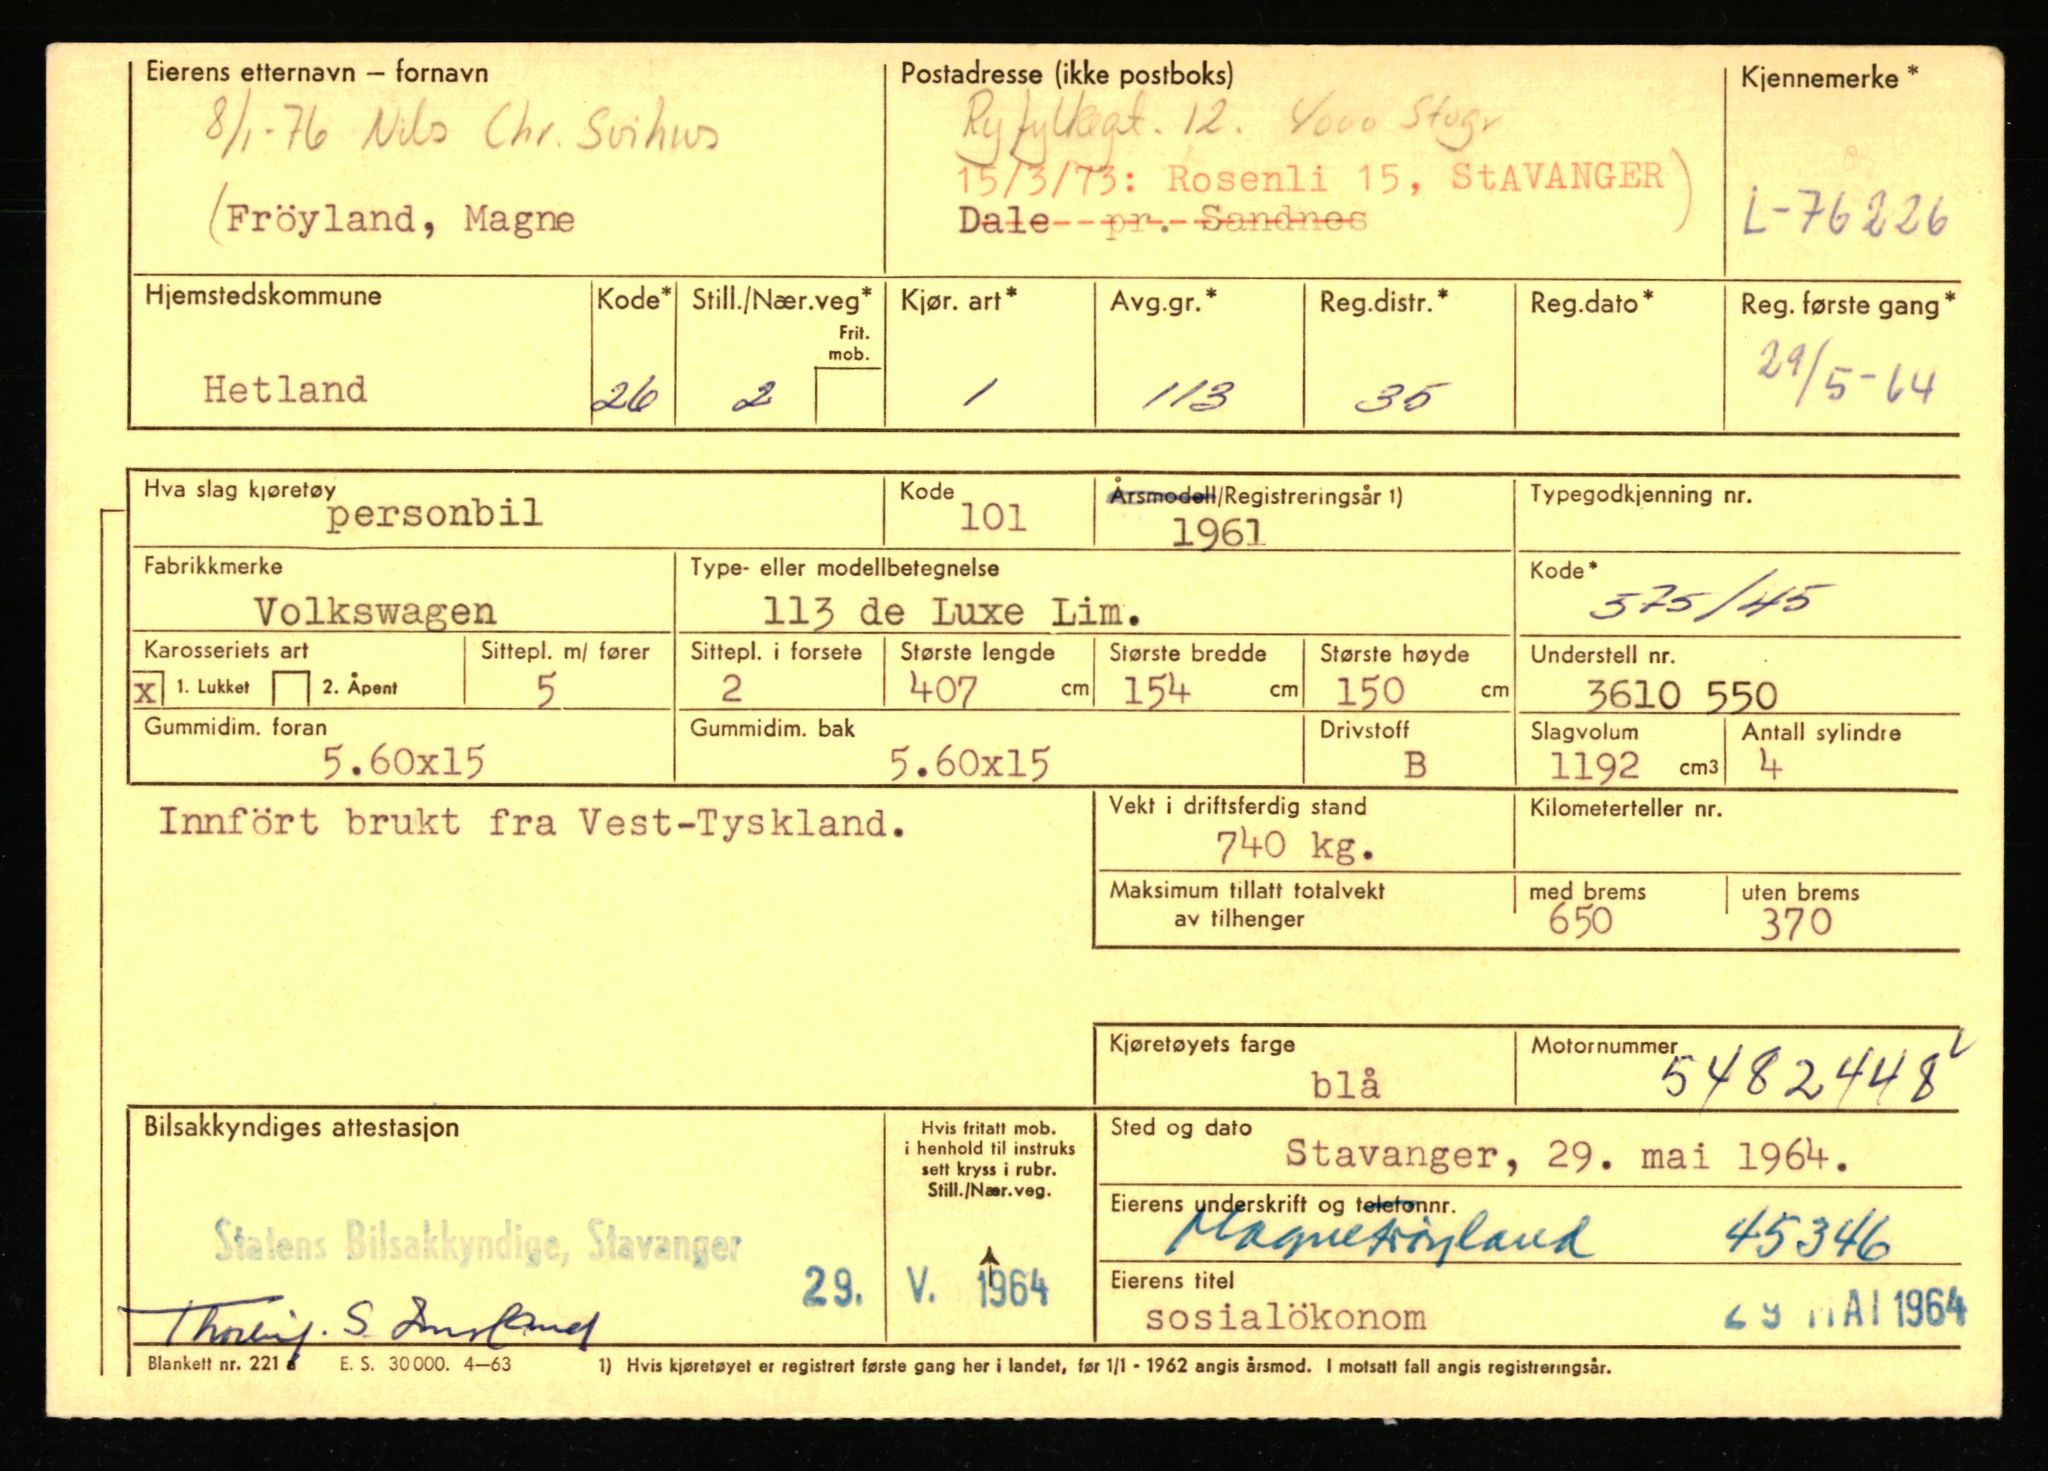 Eierens etternavn – fornavn
Postadresse (ikke postboks)
Kjennemerke*
8/1-76 Nils Chr. Svihus
Ryfylkegt. 12. 4000 Stvgr
15/3/73: Rosenli 15, StAVANGER)
(Fröyland, Magne
Dale pr. Sandnes
L-76226
Hjemstedskommune
Kode*
Still./Nær.veg*
Frit. mob.
Kjør. art*
Avg.gr.*
Reg.distr.*
Reg.dato*
Reg. første gang*
Hetland
26
2
1
113
35
29/5-64
Hva slag kjøretøy
personbil
Kode
101
Årsmodell/Registreringsår 1)
1961
Typegodkjenning nr.
Fabrikkmerke
Volkswagen
Type- eller modellbetegnelse
113 de Luxe Lim.
Kode*
575/45
Karosseriets art
x 1. Lukket 2. Åpent
Sittepl. m/ fører
5
Sittepl. i forsete
2
Største lengde
407 cm
Største bredde
154 cm
Største høyde
150 cm
Understell nr.
3610 550
Gummidim. foran
5.60x15
Gummidim. bak
5.60x15
Drivstoff
B
Slagvolum
1192 cm3
Antall sylindre
4
Innfört brukt fra Vest-Tyskland.
Vekt i driftsferdig stand
740 kg.
Kilometerteller nr.
Maksimum tillatt totalvekt
av tilhenger
med brems
650
uten brems
370
Kjøretøyets farge
blå
Motornummer
5482448
Bilsakkyndiges attestasjon
Hvis fritatt mob.
i henhold til instruks
sett kryss i rubr.
Still./Nær.veg.
Sted og dato
Stavanger, 29. mai 1964.
Eierens underskrift og telefonnr.
Magne Frøyland 45346
Statens Bilsakkyndige, Stavanger
29. V. 1964
Eierens titel
sosialökonom
29 MAI 1964
Blankett nr. 221 E. S. 30000. 4–63
1) Hvis kjøretøyet er registrert første gang her i landet, før 1/1 - 1962 angis årsmod. I motsatt fall angis registreringsår.